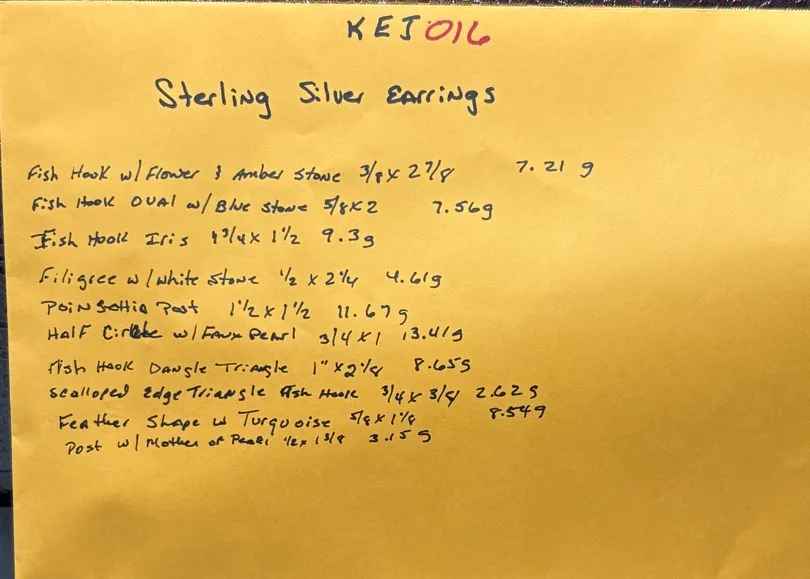 KEJ016
Sterling Silver Earrings
Fish Hook w/ Flower & Amber Stone 3/8 x 2 7/8 7.21 g
Fish Hook OVAl w/ Blue Stone 5/8 x 2 7.56g
Fish Hook Iris 1 3/4 x 1 1/2 9.3g
Filigree w/ White Stone 1/2 x 2 1/4 4.61g
Poinsettia Post 1 1/2 x 1 1/2 11.67g
Half Circle w/ Faux Pearl 3/4 x 1 13.41g
Fish Hook Dangle Triangle 1" x 2 1/8 8.65g
Scalloped Edge Triangle Fish Hook 3/4 x 3/8 2.62g
Feather Shape w Turquoise 5/8 x 1 1/8 8.54g
Post w/ Mother of Pearl 1/2 x 1 3/8 3.15g